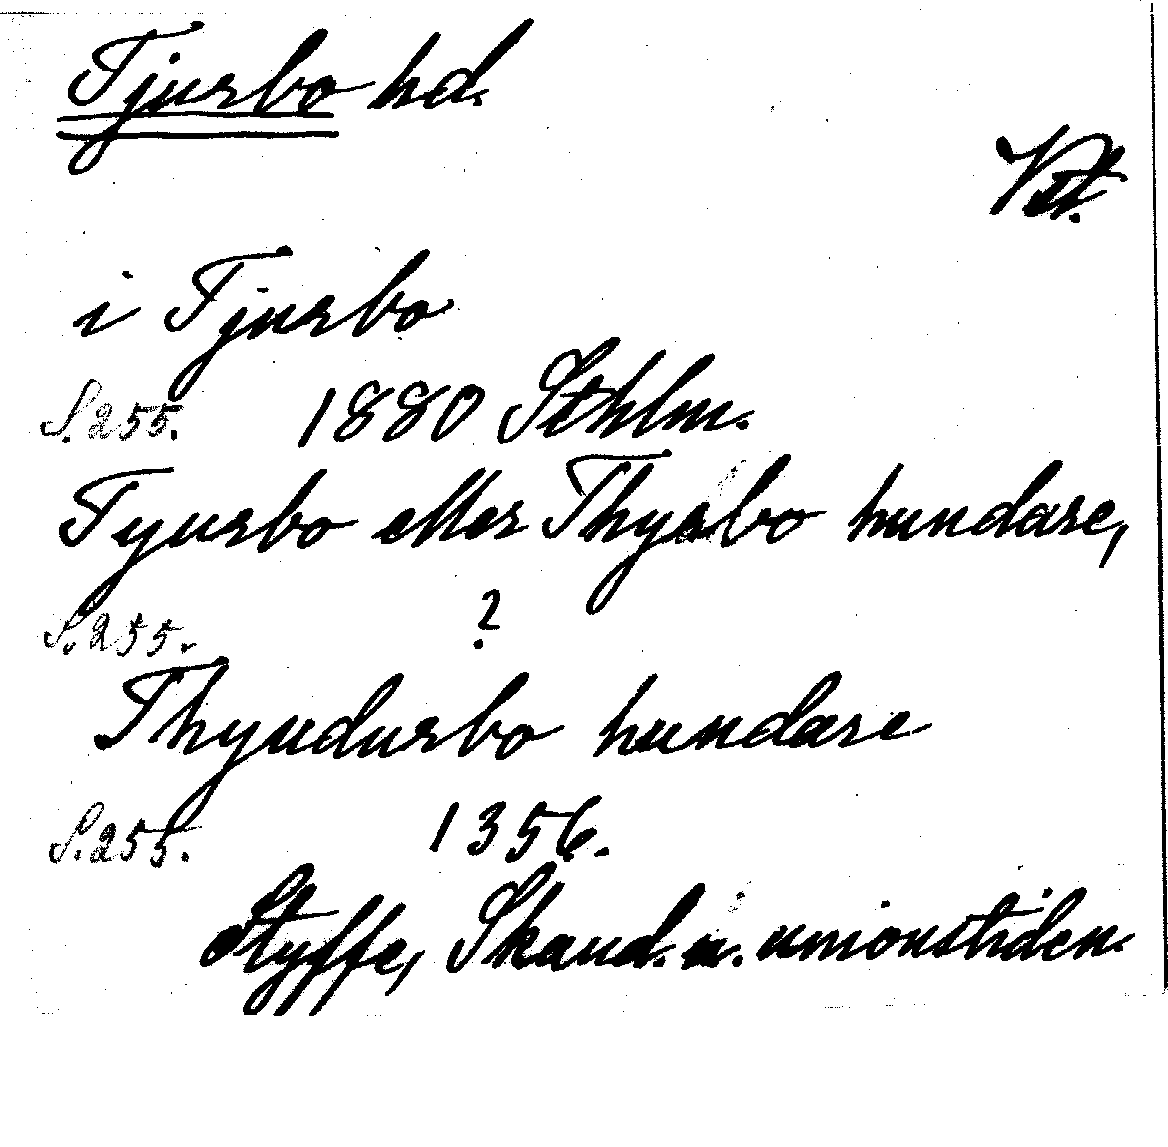 Tjurbo hd.
Vstm.
i Tjurbo
S. 255. 1880 Sthlm.
Tyurbo eller Thyrbo hundare,
S. 255. ?
Thyudurbo hundare
S. 255. 1356.
Styffe, Skand. u. unionstiden.